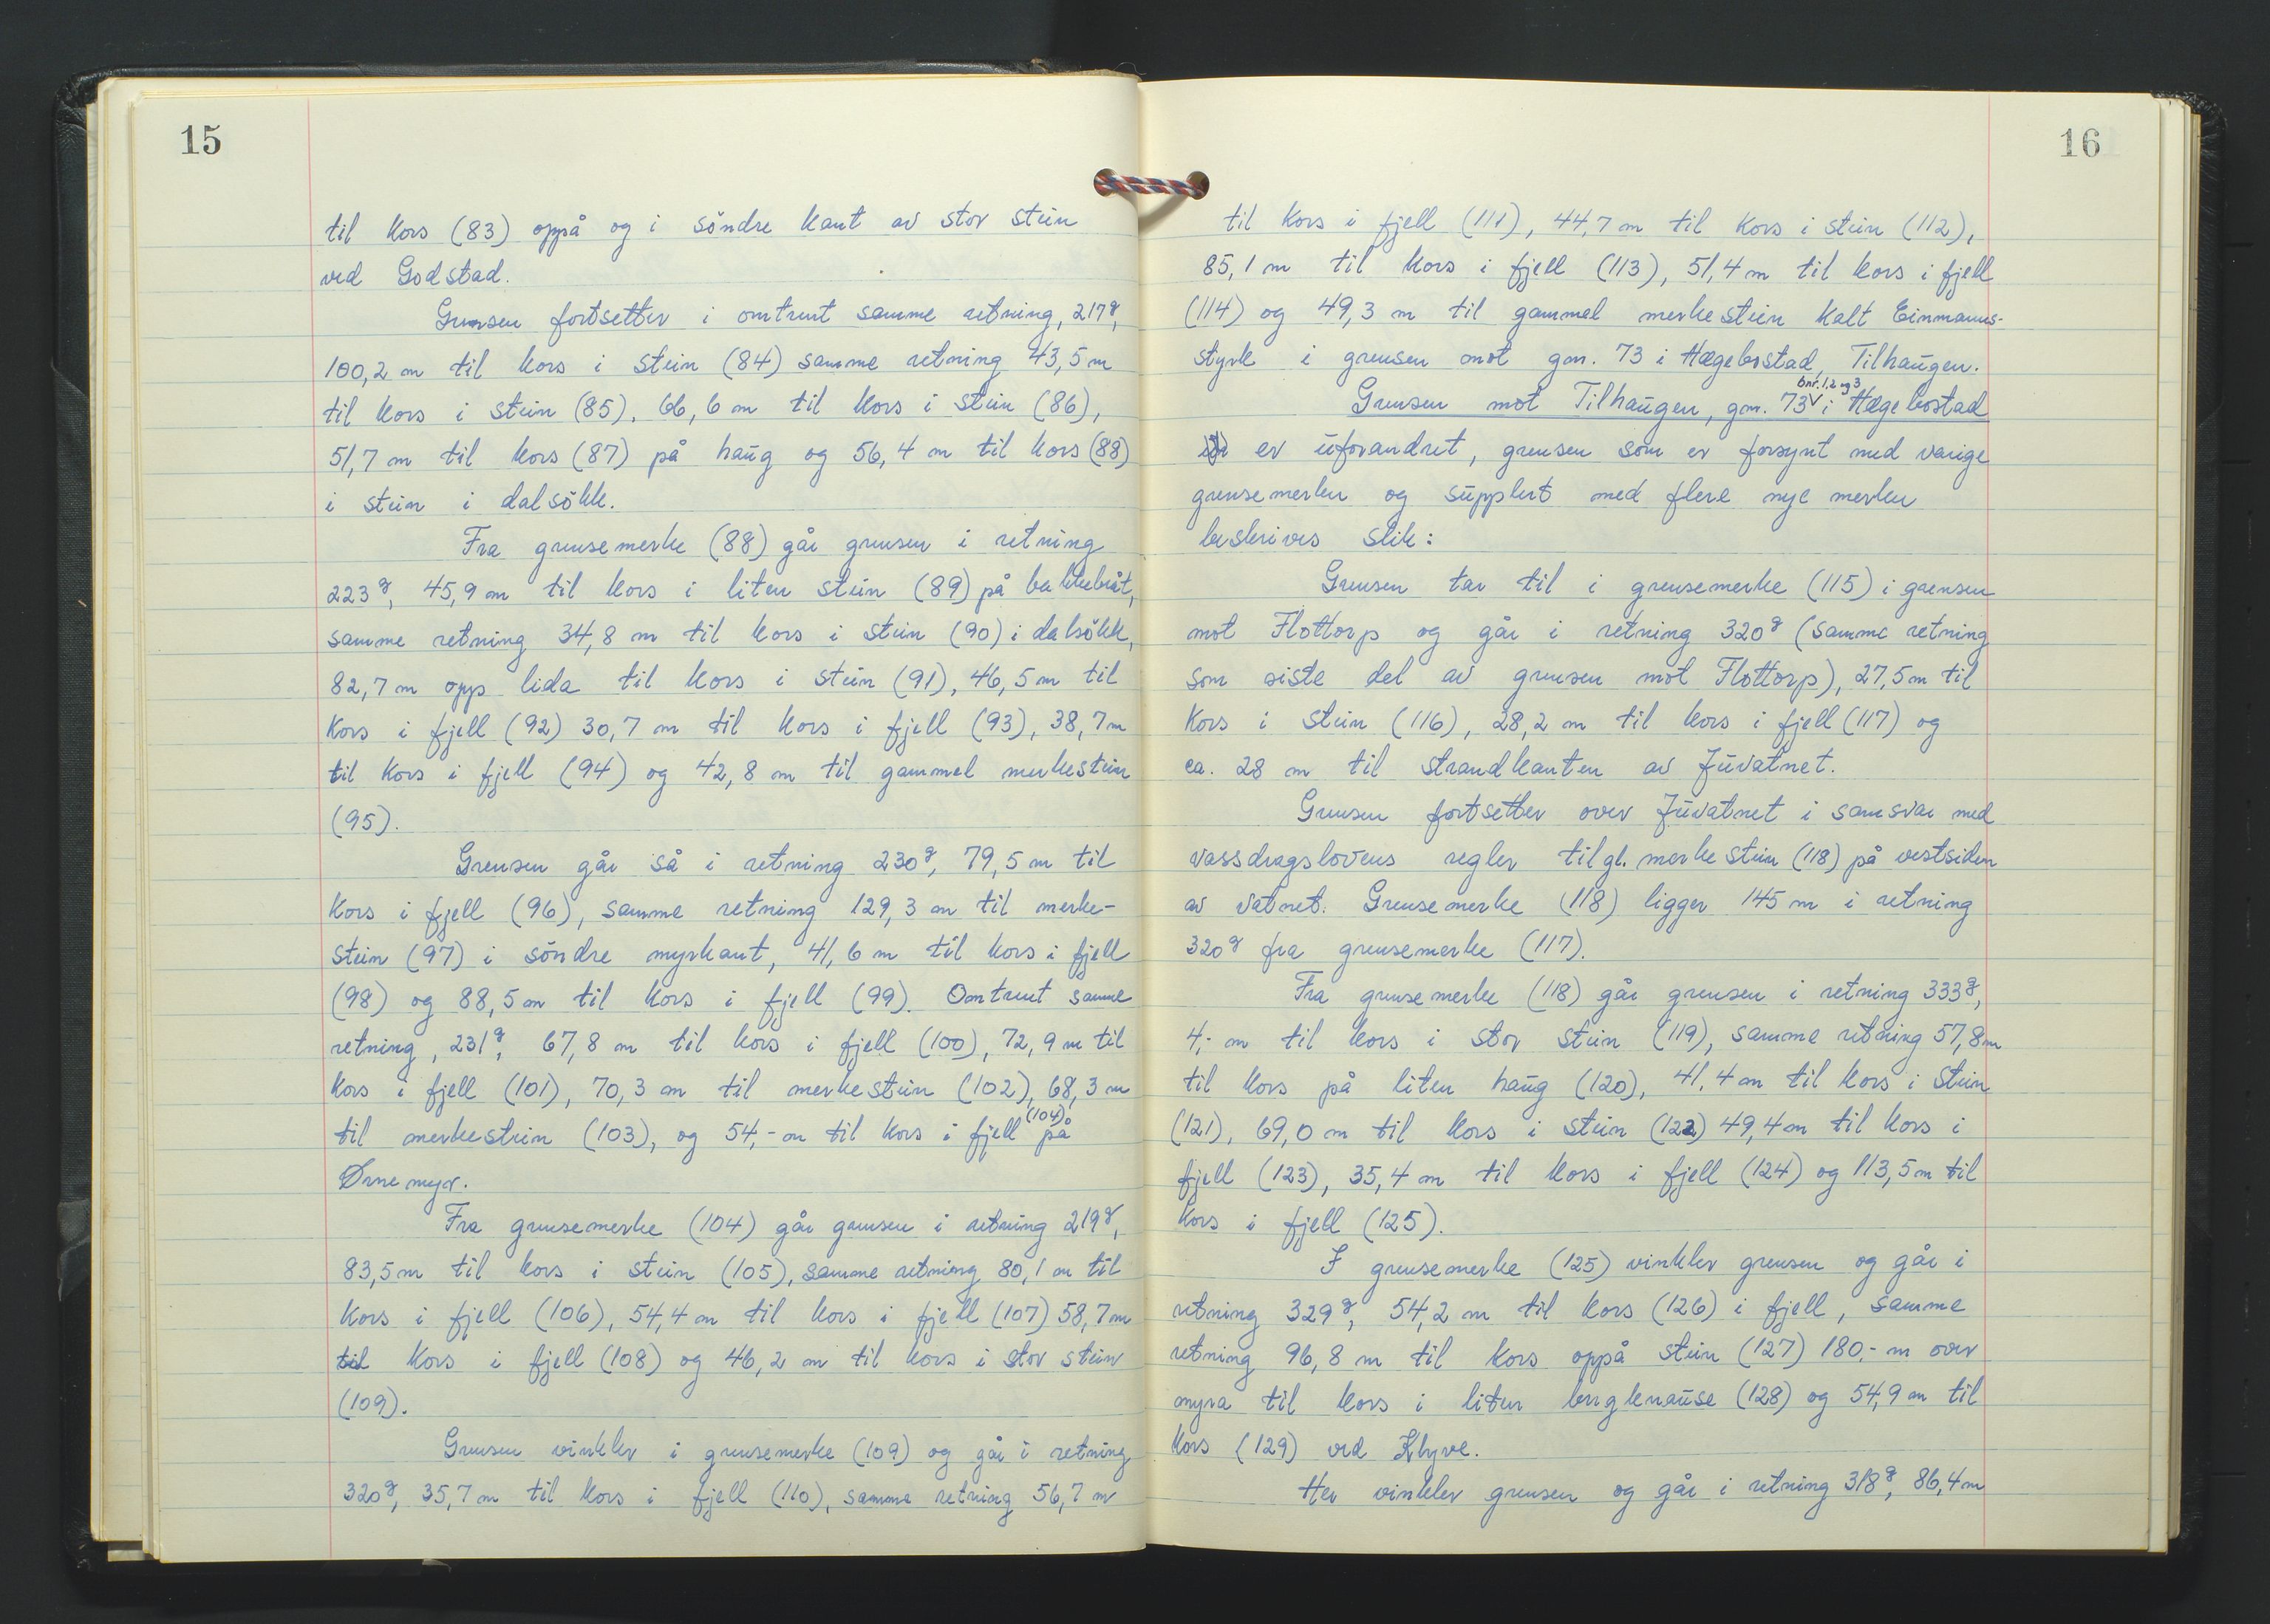 15
til kors (83) oppå og i søndre kant av stor stein
ved Godstad.
Grensen fortsetter i omtrent samme retning, 217g,
100,2 m til kors i stein (84) samme retning 43,5 m
til kors i stein (85), 66,6 m til kors i stein (86),
51,7 m til kors (87) på haug og 56,4 m til kors (88)
i stein i dalsökk.
Fra grensemerke (88) går grensen i retning
223g, 45,9 m til kors i liten stein (89) på bakkebråt,
samme retning 34,8 m til kors i stein (90) i dalsökk,
82,7 m opp lida til kors i stein (91), 46,5 m til
kors i fjell (92) 30,7 m til kors i fjell (93), 38,7 m
til kors i fjell (94) og 42,8 m til gammel merkestein
(95).
Grensen går så i retning 230g, 79,5 m til
kors i fjell (96), samme retning 129,3 m til merke-
stein (97) i söndre myrkant, 41,6 m til kors i fjell
(98) og 88,5 m til kors i fjell (99). Omtrent samme
retning, 231g, 67,8 m til kors i fjell (100), 72,9 m til
kors i fjell (101), 70,3 m til merkestein (102), 68,3 m
til merkestein (103), og 54,- m til kors i fjell (104) på
Ørnemyr.
Fra grensemerke (104) går grensen i retning 219g,
83,5 m til kors i stein (105), samme retning 80,1 m til
kors i fjell (106), 54,4 m til kors i fjell (107) 58,7 m
til kors i fjell (108) og 46,2 m til kors i stor stein
(109).
Grensen vinkler i grensemerke (109) og går i retning
320g, 35,7 m til kors i fjell (110), samme retning 56,7 m
16
til kors i fjell (111), 44,7 m til kors i stein (112),
85,1 m til kors i fjell (113), 51,4 m til kors i fjell
(114) og 49,3 m til gammel merkestein kalt Einmanns-
styrk i grensen mot gnr. 73 i Hægebostad, Tilhaugen.
Grensen mot Tilhaugen, gnr. 73 bnr. 1, 2 og 3 i Hægebostad
er uforandret, grensen som er forsynt med varige
grensemerker og supplert med flere nye merker
beskrives slik:
Grensen tar til i grensemerke (115) i grensen
mot Flottorp og går i retning 320g (samme retning
som siste del av grensen mot Flottorp), 27,5 m til
kors i stein (116), 28,2 m til kors i fjell (117) og
ca. 28 m til strandkanten av Juvatnet.
Grensen fortsetter over Juvatnet i samsvar med
vassdragslovens regler til gl. merkestein (118) på vestsiden
av vatnet. Grensemerke (118) ligger 145 m i retning
320g fra grensemerke (117).
Fra grensemerke (118) går grensen i retning 333g,
4,- m til kors i stor stein (119), samme retning 57,8 m
til kors på liten haug (120), 41,4 m til kors i stein
(121), 69,0 m til kors i stein (122) 49,4 m til kors i
fjell (123), 35,4 m til kors i fjell (124) og 113,5 m til
kors i fjell (125).
I grensemerke (125) vinkler grensen og går i
retning 329g, 54,2 m til kors (126) i fjell, samme
retning 96,8 m til kors oppå stein (127) 180,- m over
myra til kors i liten bergknause (128) og 54,9 m til
kors (129) ved Klyve.
Her vinkler grensen og går i retning 318g, 86,4 m